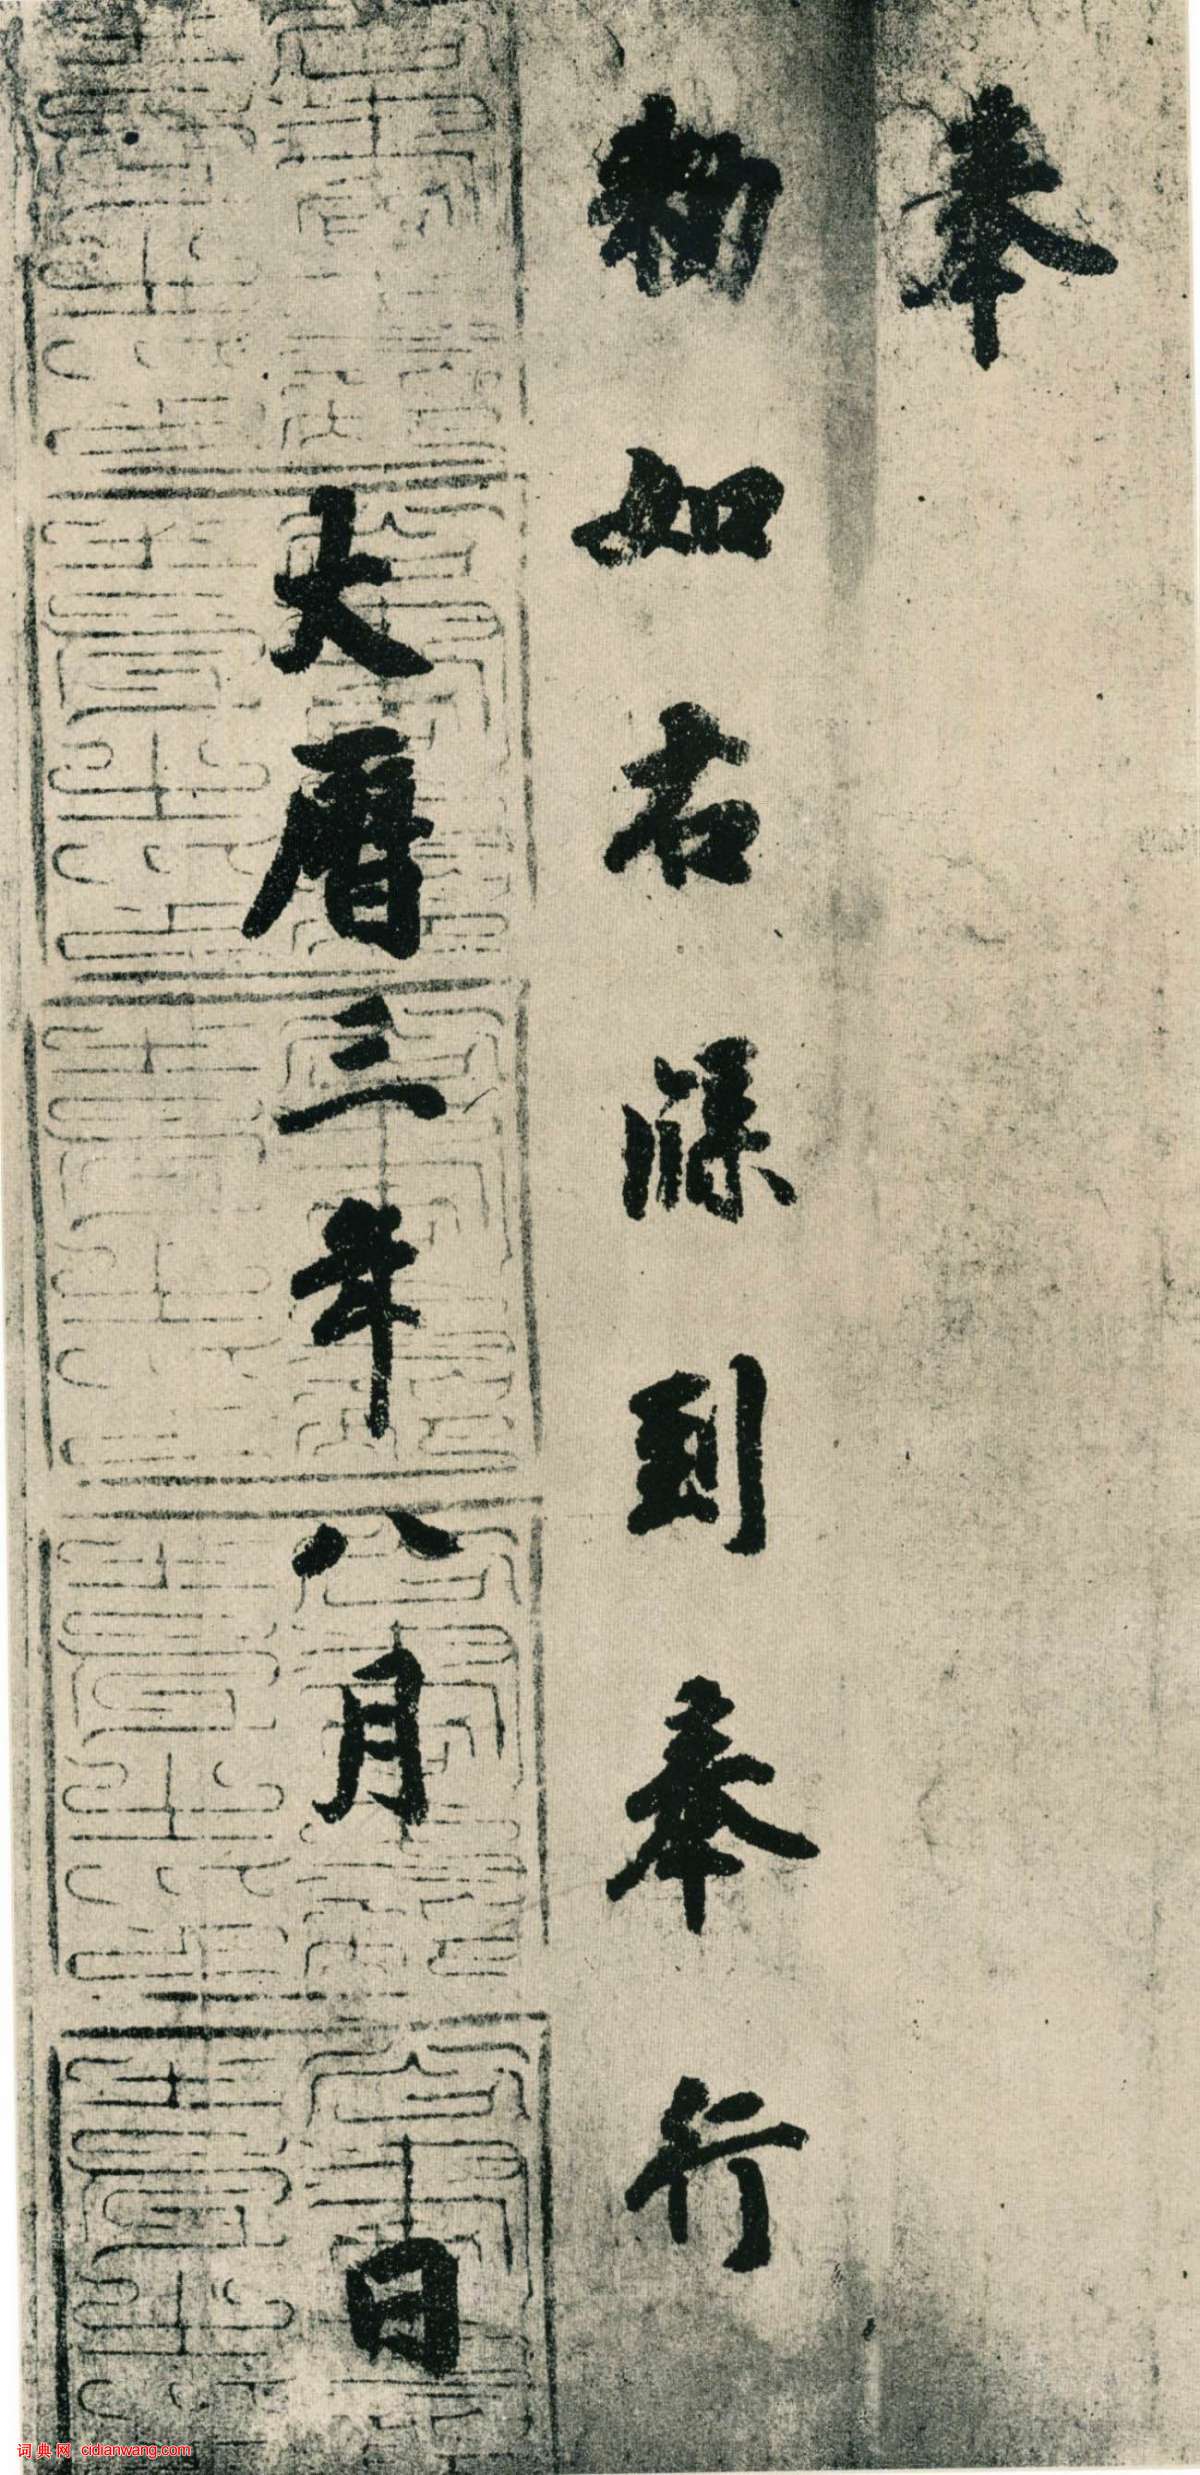 奉
勅如右牒到奉行
大曆三年八月 日
词典网 cidianwang.com